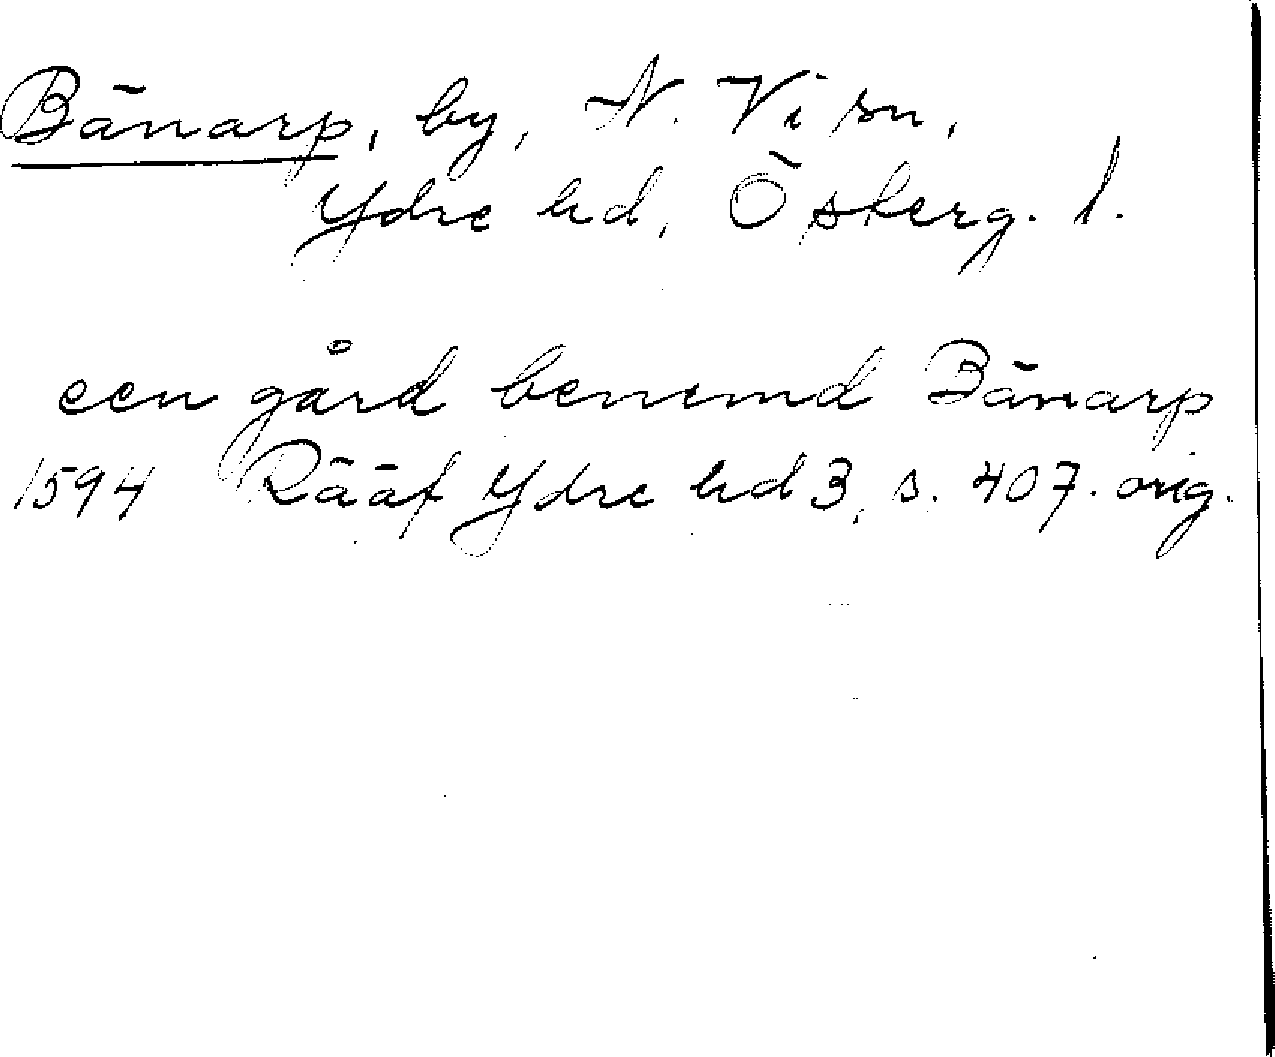 Bänarp, by, N. Vi sn,
Ydre hd, Österg. l.
een gård benemd Bänarp
1594 Rääf Ydre hd 3, s. 407. orig.